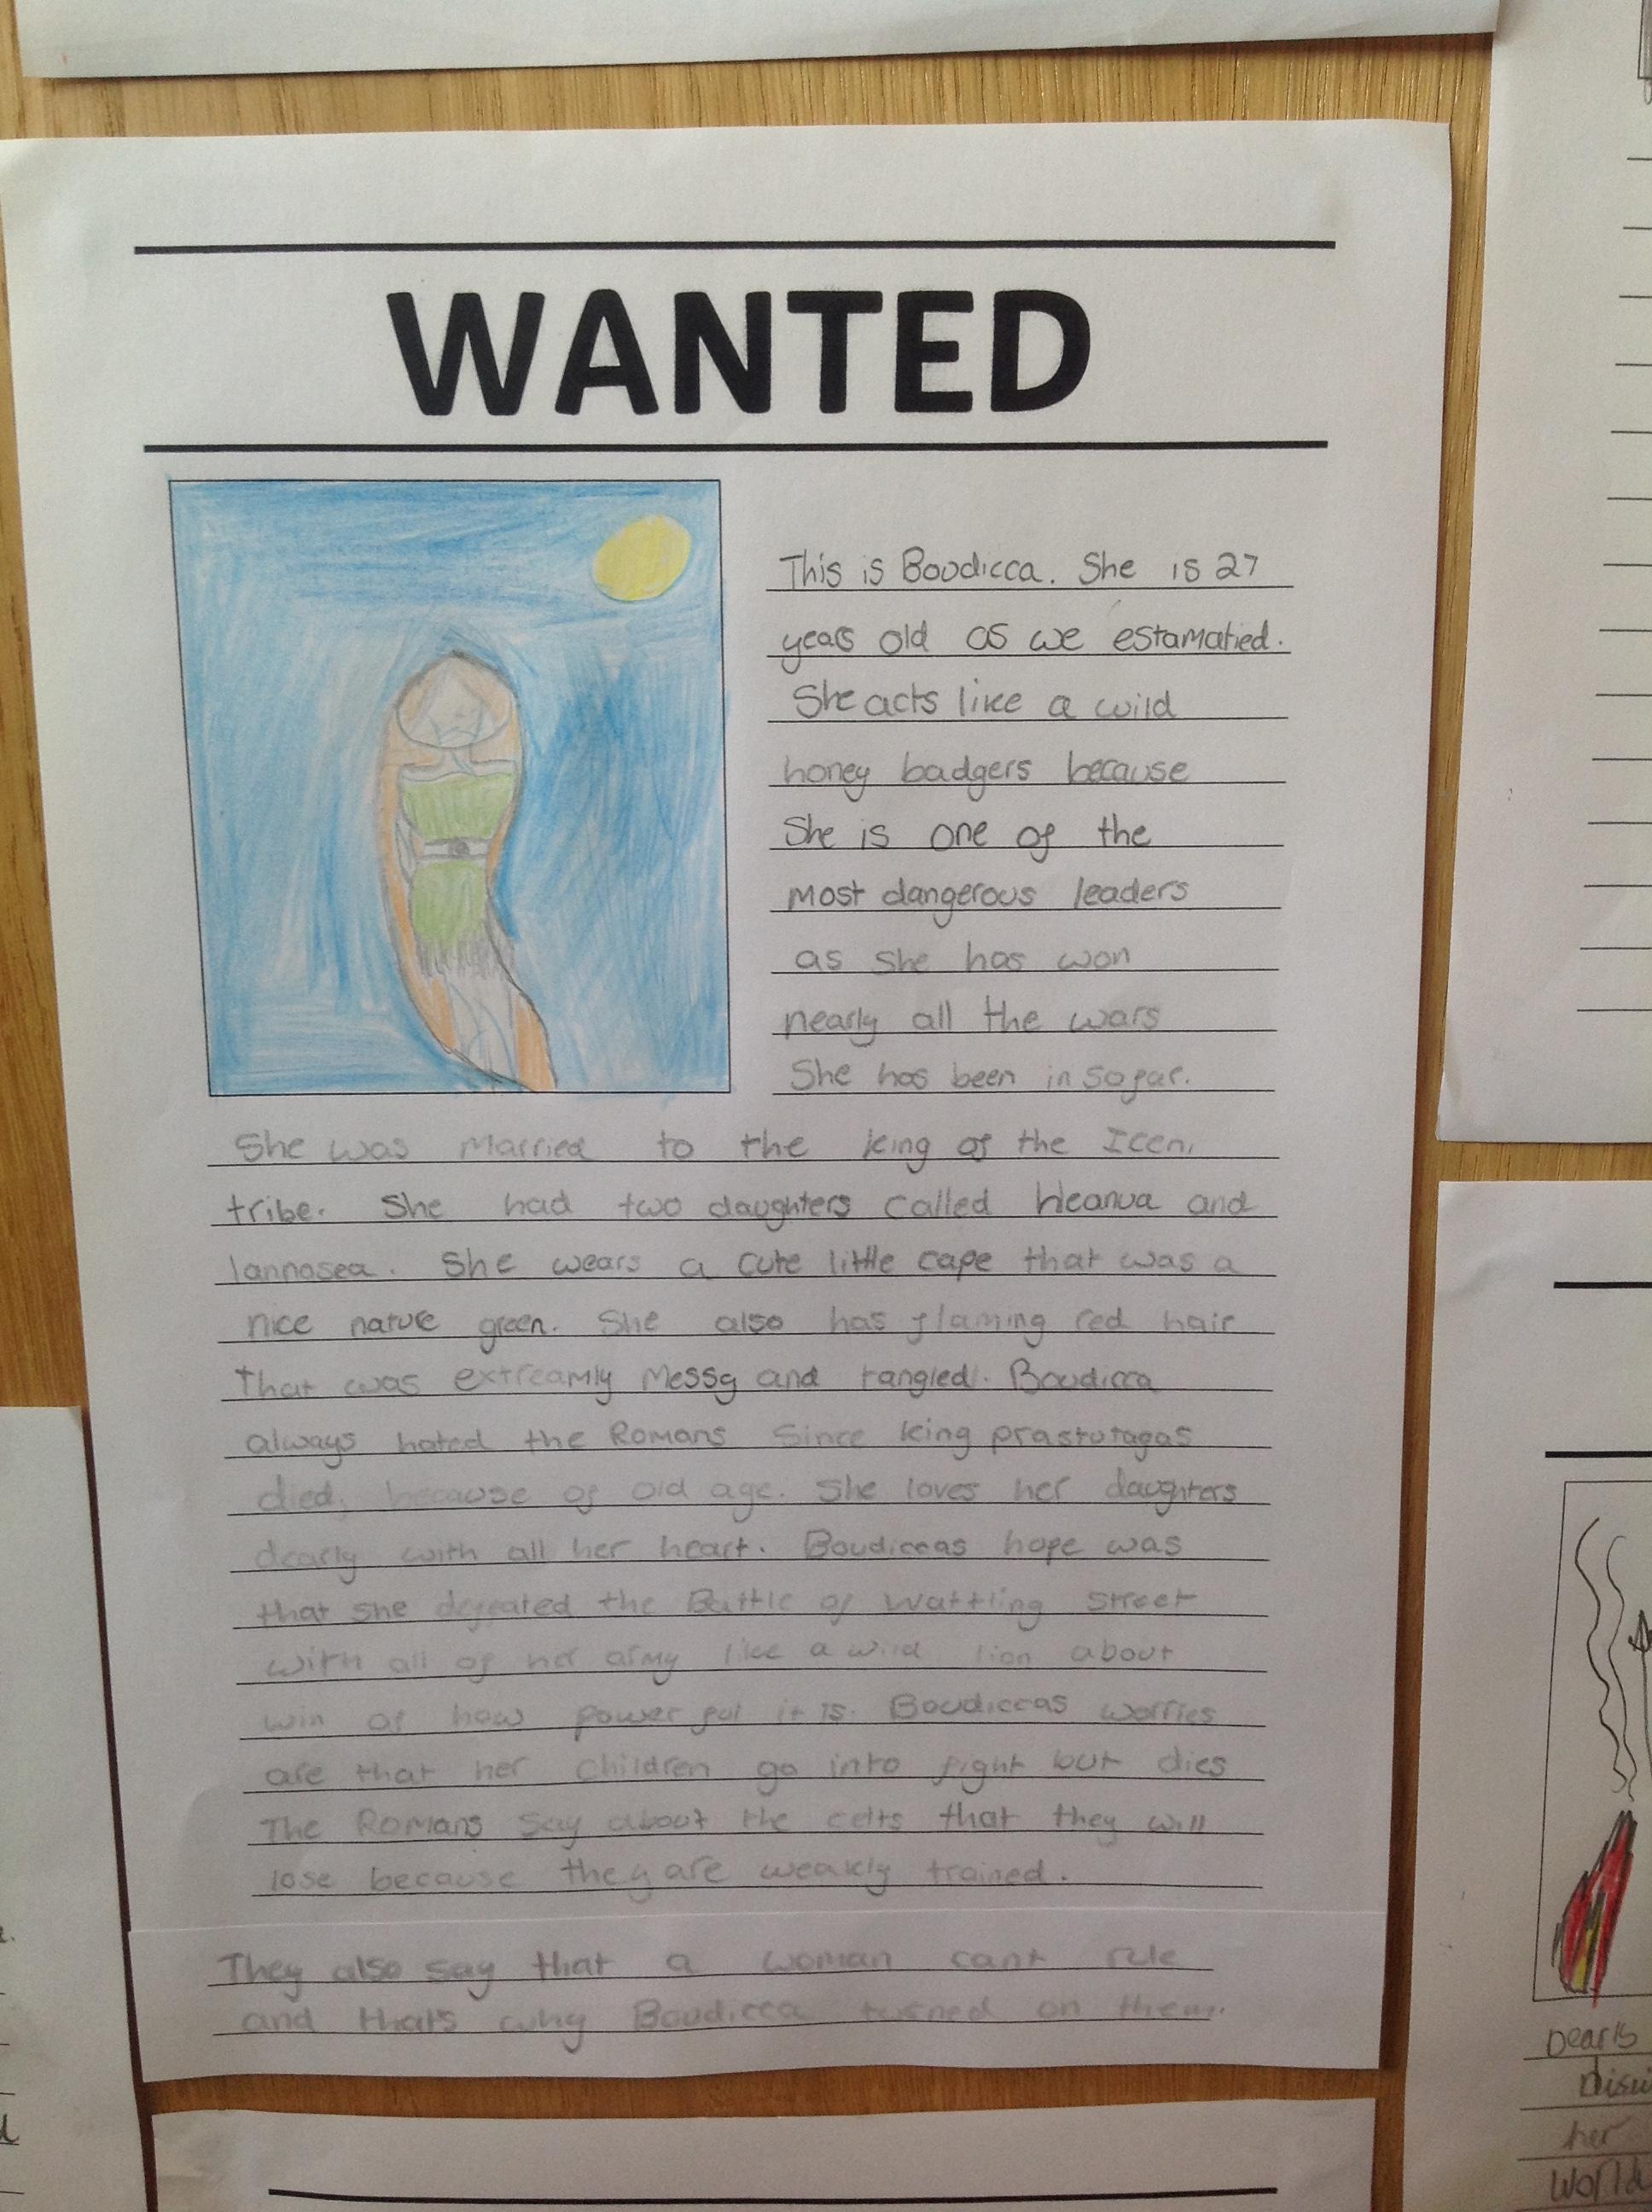 WANTED
This is Boudicca. She is 27
years old as we estamatied.
She acts like a wild
honey badgers because
She is one of the
most dangerous leaders
as she has won
nearly all the wars
She has been in so far.
She was Married to the king of the Iceni
tribe. She had two daughters called Heanua and
lannosea. She wears a cute little cape that was a
nice nature green. She also has flaming red hair
that was extreamly messy and tangled. Boudicca
always hated the Romans Since king prastutagas
died, because of old age. She loves her daughters
dearly with all her heart. Boudiccas hope was
that she defeated the Battle of Wattling Street
with all of her army like a wild lion about
win of how power ful it is. Boudiccas worries
are that her children go into fight but dies
The Romans Say about the celts that they will
lose because they are weakly trained.
They also say that a woman cant rule
and that's why Boudicca turned on them.
Dearly
her